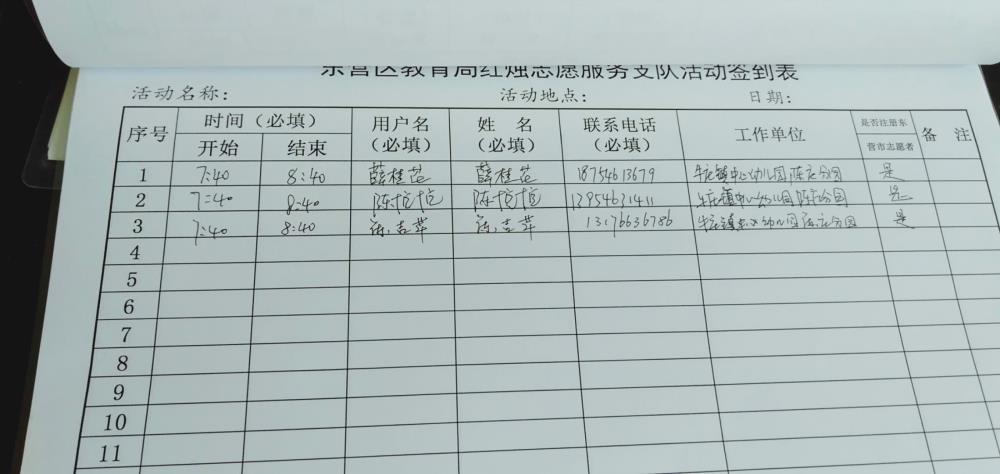 东营区教育局红烛志愿服务支队活动签到表
活动名称： 活动地点： 日期：
序号 时间（必填） 用户名（必填） 姓 名（必填） 联系电话（必填） 工作单位 是否注册东营市志愿者 备 注
开始 结束
1 7:40 8:40 薛桂花 薛桂花 18754613679 牛庄镇中心幼儿园陈庄分园 是
2 7:40 8:40 陈 13954631411 牛庄镇中心幼儿园陈庄分园 是
3 7:40 8:40 13176636786 牛庄镇中心幼儿园陈庄分园 是
4
5
6
7
8
9
10
11